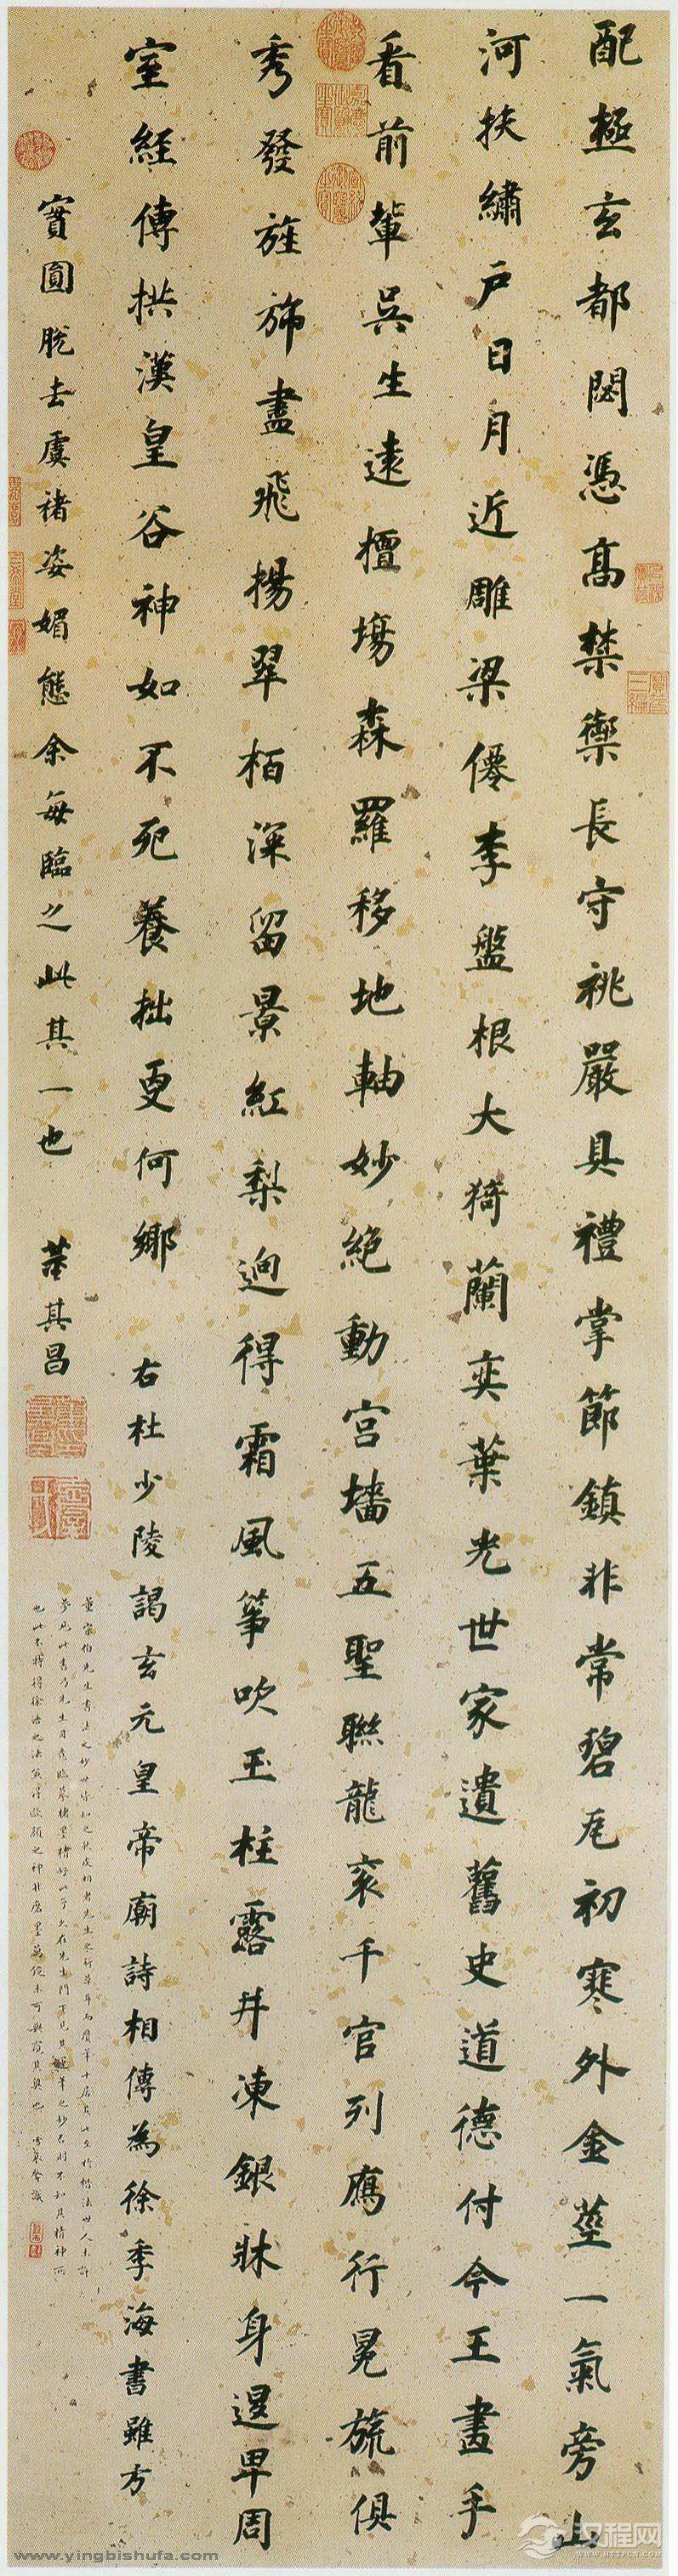 配極玄都閟憑高禁禦長守祧嚴具禮掌節鎮非常碧瓦初寒外金莖一氣旁山
河扶繡戶日月近雕梁僊李盤根大猗蘭奕葉光世家遺舊史道德付今王畫手
看前輩吳生遠擅場森羅移地軸妙絕動宮墻五聖聯龍袞千官列鴈行冕旒俱
秀發旌旆盡飛揚翠栢深留景紅梨迥得霜風箏吹玉柱露井凍銀牀身退卑周
室經傳拱漢皇谷神如不死養拙更何鄉 右杜少陵謁玄元皇帝廟詩相傳為徐季海書雖方
實圓脫去虞褚姿媚態余每臨之此其一也 董其昌
www.yingbishufa.com
汉程网
WWW.HTTPCN.COM